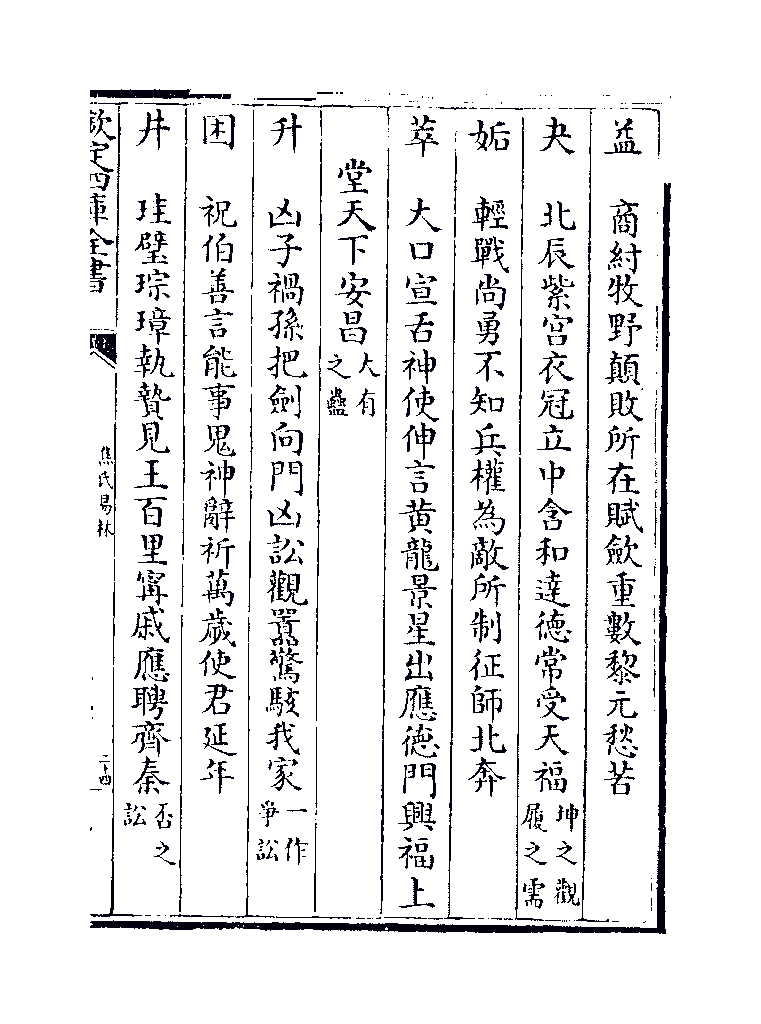 益　商紂牧野顛敗所在賦歛重數黎元愁苦
夬　北辰紫宫衣冠立中含和達德常受天福坤之觀履之需
姤　輕戰尚勇不知兵權為敵所制征師北奔
萃　大口宣舌神使伸言黄龍景星出應德門興福上
堂天下安昌大有之蠱
升　凶子禍孫把劍向門凶訟觀嚚驚駭我家一作爭訟
困　祝伯善言能事鬼神辭祈萬歲使君延年
井　珪璧琮璋執贄見王百里甯戚應聘齊秦否之訟
欽定四庫全書
焦氏易林
二十四